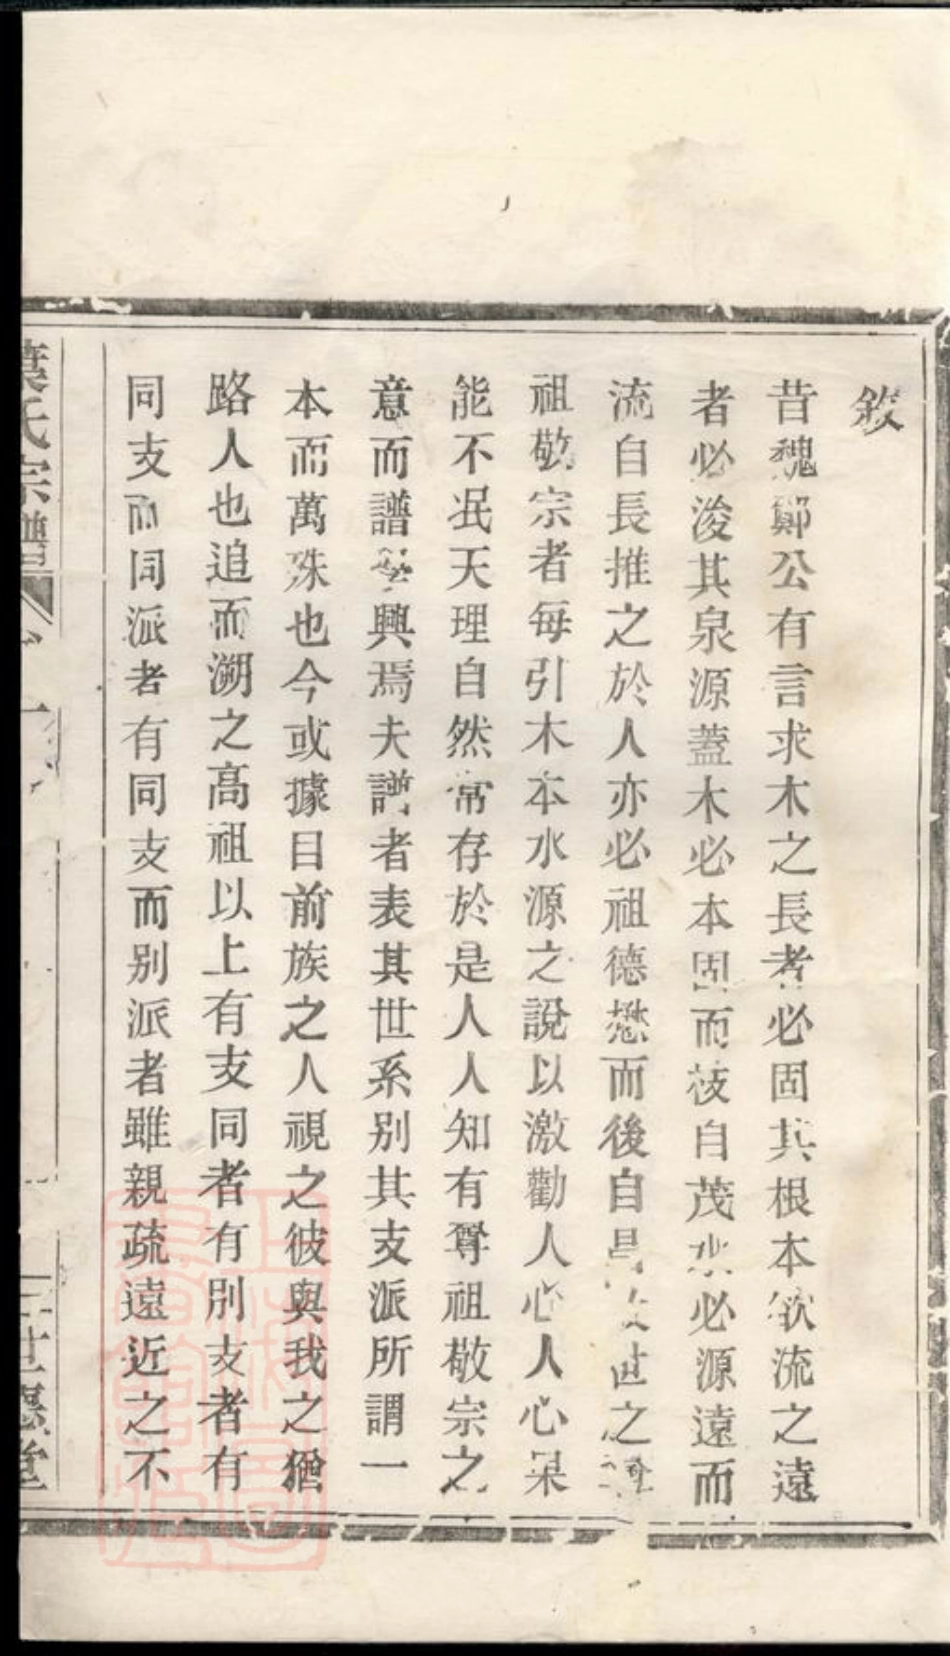 敘
昔魏鄭公有言求木之長者必固其根本欲流之遠
者必浚其泉源蓋木必本固而枝自茂水必源遠而
流自長推之於人亦必祖德懋而後自昌故世之尊
祖敬宗者每引木本水源之說以激勸人心人心果
能不泯天理自然常存於是人人知有尊祖敬宗之
意而譜學興焉夫譜者表其世系別其支派所謂一
本而萬殊也今或據目前族之人視之彼與我之猶
路人也追而溯之高祖以上有支同者有別支者有
同支而同派者有同支而別派者雖親疏遠近之不
葉氏宗譜 卷一 一 世德堂
上海圖書館藏